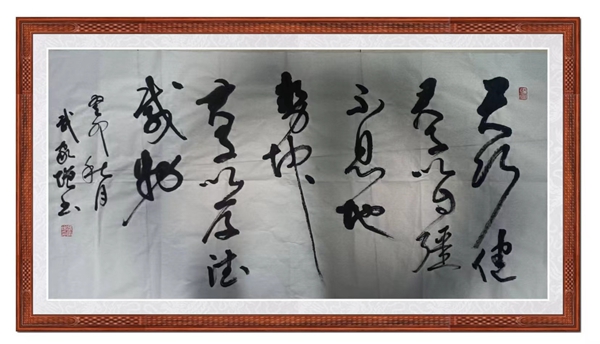 天行健
君子以自彊
不息地
势坤
君子以厚德
载物
癸卯秋月
武家书